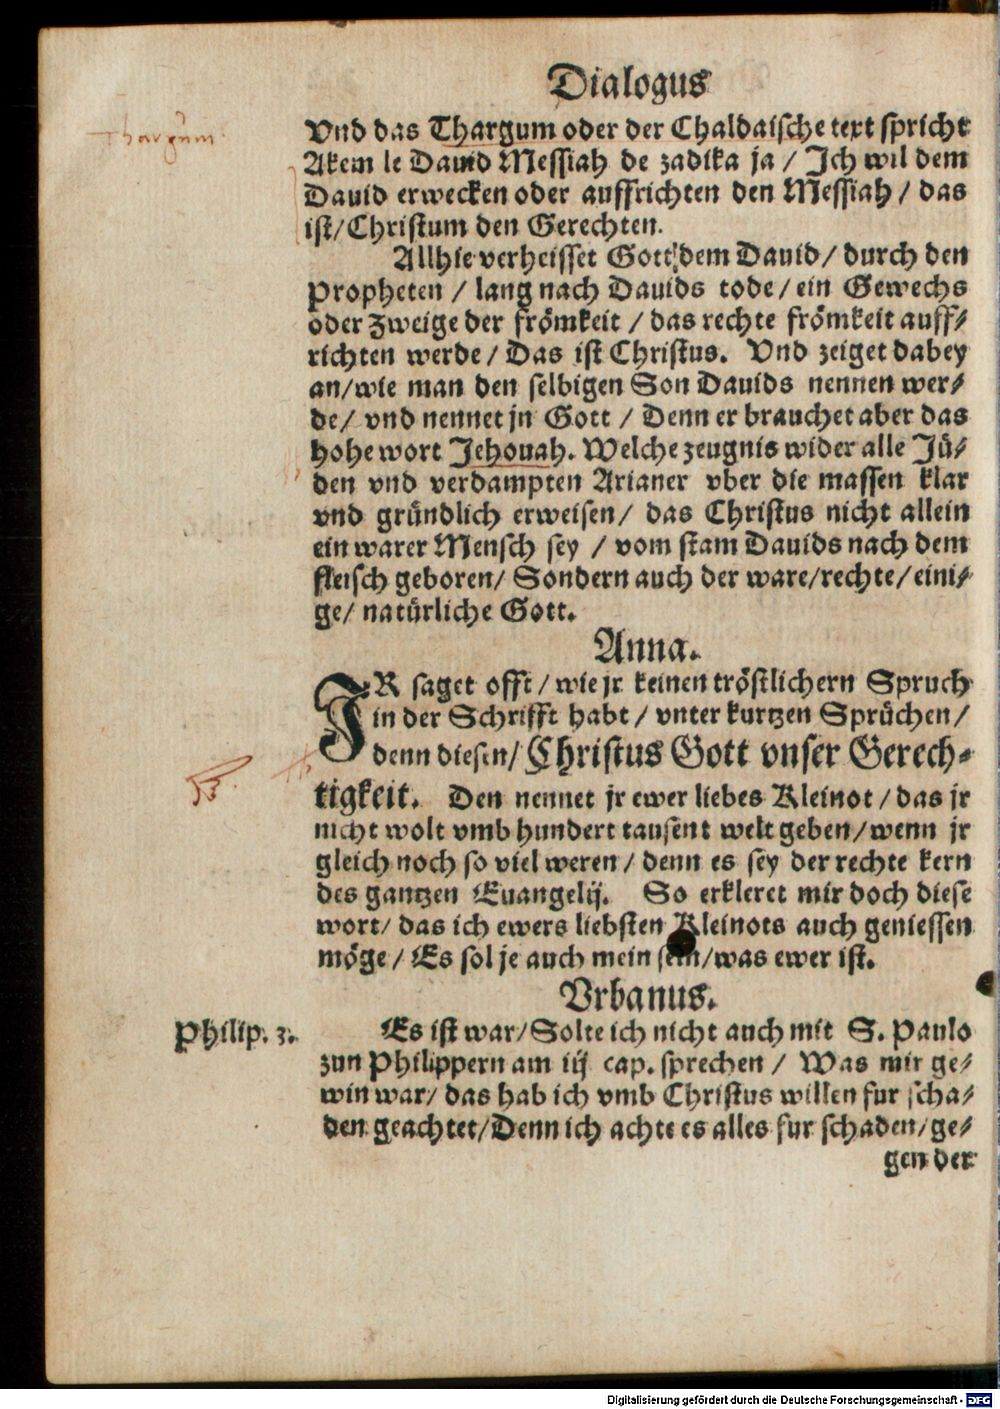 Dialogus
Thargum
Vnd das Thargum oder der Chaldaische text spricht
Akem le Dauid Messiah de zadika ja / Ich wil dem
Dauid erwecken oder auffrichten den Messiah / das
ist/ Christum den Gerechten.
Allhie verheisset Gott dem Dauid/ durch den
Propheten / lang nach Dauids tode/ ein Gewechs
oder Zweige der frömkeit / das rechte frömkeit auff⸗
richten werde/ Das ist Christus. Vnd zeiget dabey
an/wie man den selbigen Son Dauids nennen wer⸗
de/ vnd nennet jn Gott / Denn er brauchet aber das
hohe wort Jehouah. Welche zeugnis wider alle Jü⸗
den vnd verdampten Arianer vber die massen klar
vnd gründlich erweisen/ das Christus nicht allein
ein warer Mensch sey / vom stam Dauids nach dem
fleisch geboren/ Sondern auch der ware/rechte/eini⸗
ge/ natürliche Gott.
Anna.
IR saget offt/ wie jr keinen tröstlichern Spruch
in der Schrifft habt/ vnter kurtzen Sprüchen/
denn diesen/ Christus Gott vnser Gerech⸗
tigkeit. Den nennet jr ewer liebes Kleinot/ das jr
nicht wolt vmb hundert tausent welt geben/wenn jr
gleich noch so viel weren/ denn es sey der rechte kern
des gantzen Euangelij. So erkleret mir doch diese
wort/ das ich ewers liebsten Kleinots auch geniessen
möge/ Es sol je auch mein sein/was ewer ist.
Vrbanus.
Philip. 3.
Es ist war/Solte ich nicht auch mit S. Paulo
zun Philippern am iij cap. sprechen / Was mir ge⸗
win war/ das hab ich vmb Christus willen fur scha⸗
den geachtet/Denn ich achte es alles fur schaden/ge⸗
gen der
Digitalisierung gefördert durch die Deutsche Forschungsgemeinschaft - DFG